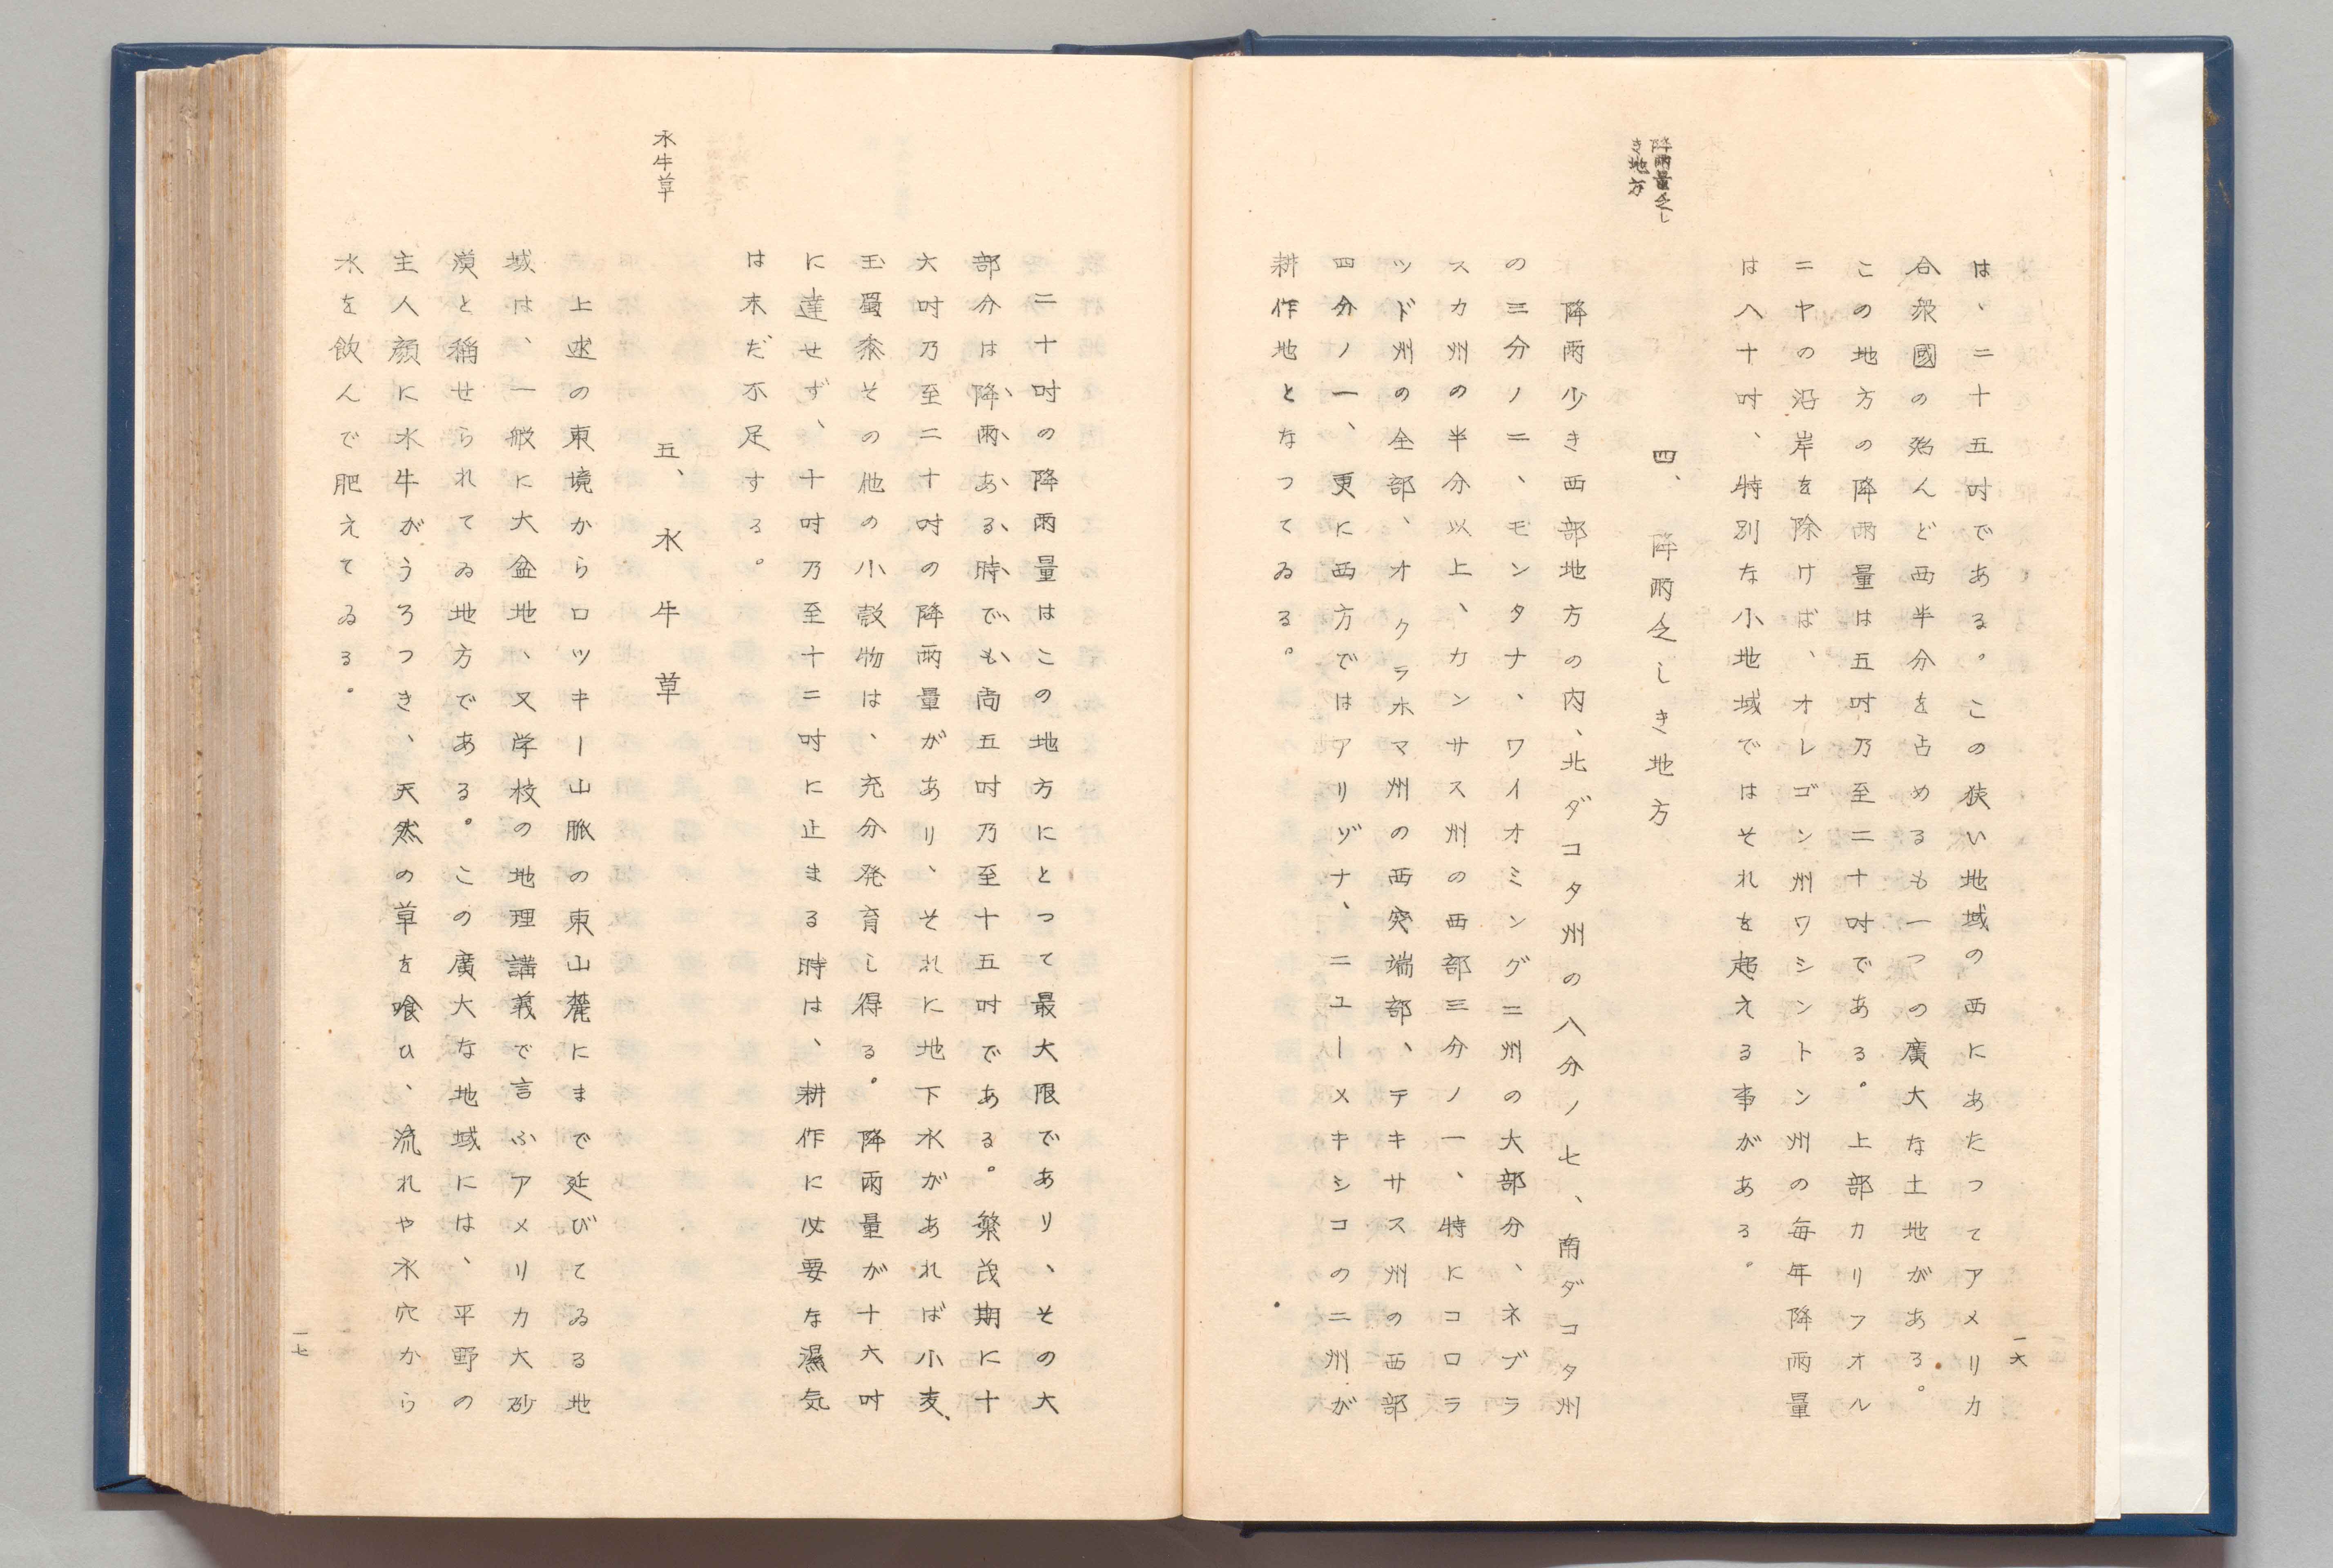 降雨量乏し
き地方
は、二十五吋である。この狭い地域の西にあたつてアメリカ
合衆國の殆んど西半分を占めるも一つの廣大な土地がある。
この地方の降雨量は五吋乃至二十吋である。上部カリフオル
ニヤの沿岸を除けば、オレゴン州ワシントン州の毎年降雨量
は八十吋、特別な小地域ではそれを超える事がある。
四、降雨乏しき地方
降雨少き西部地方の内、北ダコタ州の八分ノ七、南ダコタ州
の三分ノ二、モンタナ、ワイオミング二州の大部分、ネブラ
スカ州の半分以上、カンサス州の西部三分ノ一、特にコロラ
ツド州の全部、オクラホマ州の西突端部、テキサス州の西部
四分ノ一、更に西方ではアリゾナ、ニユーメキシコの二州が
耕作地となつてゐる。
一六
水牛草
二十吋の降雨量はこの地方にとつて最大限であり、その大
部分は降雨ある時でも尚五吋乃至十五吋である。繁茂期に十
六吋乃至二十吋の降雨量があり、それに地下水があれば小麦、
玉蜀黍その他の小穀物は、充分発育し得る。降雨量が十六吋
に達せず、十吋乃至十二吋に止まる時は、耕作に必要な濕気
は未だ不足する。
五、水牛草
上述の東境からロツキー山脈の東山麓にまで延びてゐる地
域は、一般に大盆地、又学校の地理講義で言ふアメリカ大砂
漠と稱せられてゐ地方である。この廣大な地域には、平野の
主人顔に水牛がうろつき、天然の草を喰ひ、流れや水穴から
水を飲んで肥えてゐる。
一七